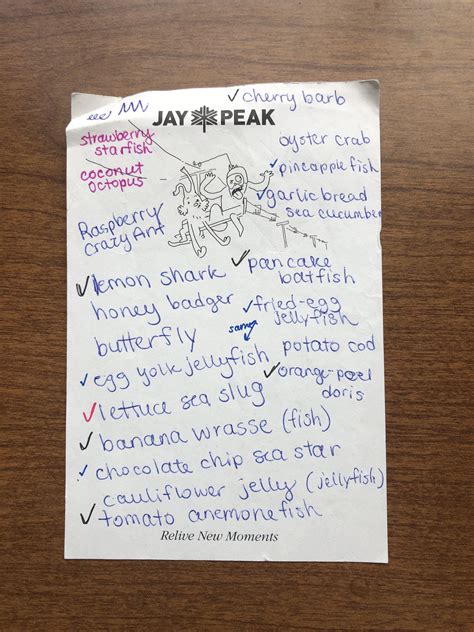 ✓ cherry barb
JAY PEAK
strawberry
starfish
oyster crab
coconut
octopus
✓ pineapple fish
✓ garlic bread
sea cucumber
Raspberry
Crazy Ant
✓ lemon shark
✓ pancake
batfish
honey badger
✓ fried-egg
jellyfish
butterfly
same
✓ egg yolk jellyfish
potato cod
✓ orange-peel
doris
✓ lettuce sea slug
✓ banana wrasse (fish)
✓ chocolate chip sea star
cauliflower jelly (jellyfish)
✓ tomato anemonefish
Relive New Moments